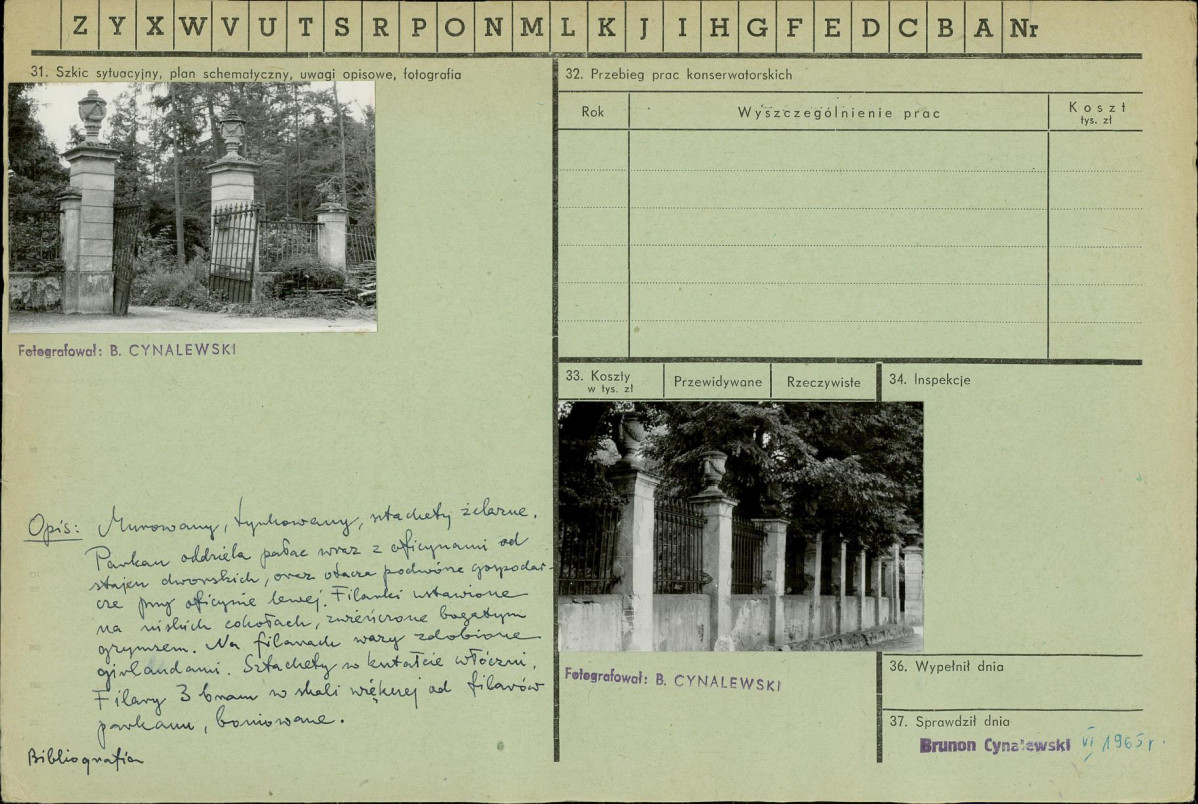 Z Y X W V U T S R P O N M L K J I H G F E D C B A Nr
31. Szkic sytuacyjny, plan schematyczny, uwagi opisowe, fotografia
Fotografował: B. CYNALEWSKI
Opis: Murowany, tynkowany, sztachety żelazne.
Parkan oddziela pałac wraz z oficynami od
stajen dworskich, oraz otacza podwórze gospodar-
cze przy oficynie lewej. Filarki ustawione
na niskich cokołach, zwieńczone bogatym
gzymsem. Na filarach wazy zdobione
girlandami. Sztachety w kształcie włóczni.
Filary 3 bram w skali większej od filarów
parkanu, boniowane.
Bibliografia
32. Przebieg prac konserwatorskich
Rok Wyszczególnienie prac Koszt
tys. zł
33. Koszty Przewidywane Rzeczywiste
w tys. zł
34. Inspekcje
Fotografował: B. CYNALEWSKI
36. Wypełnił dnia
37. Sprawdził dnia
Brunon Cynalewski VI 1965 r.